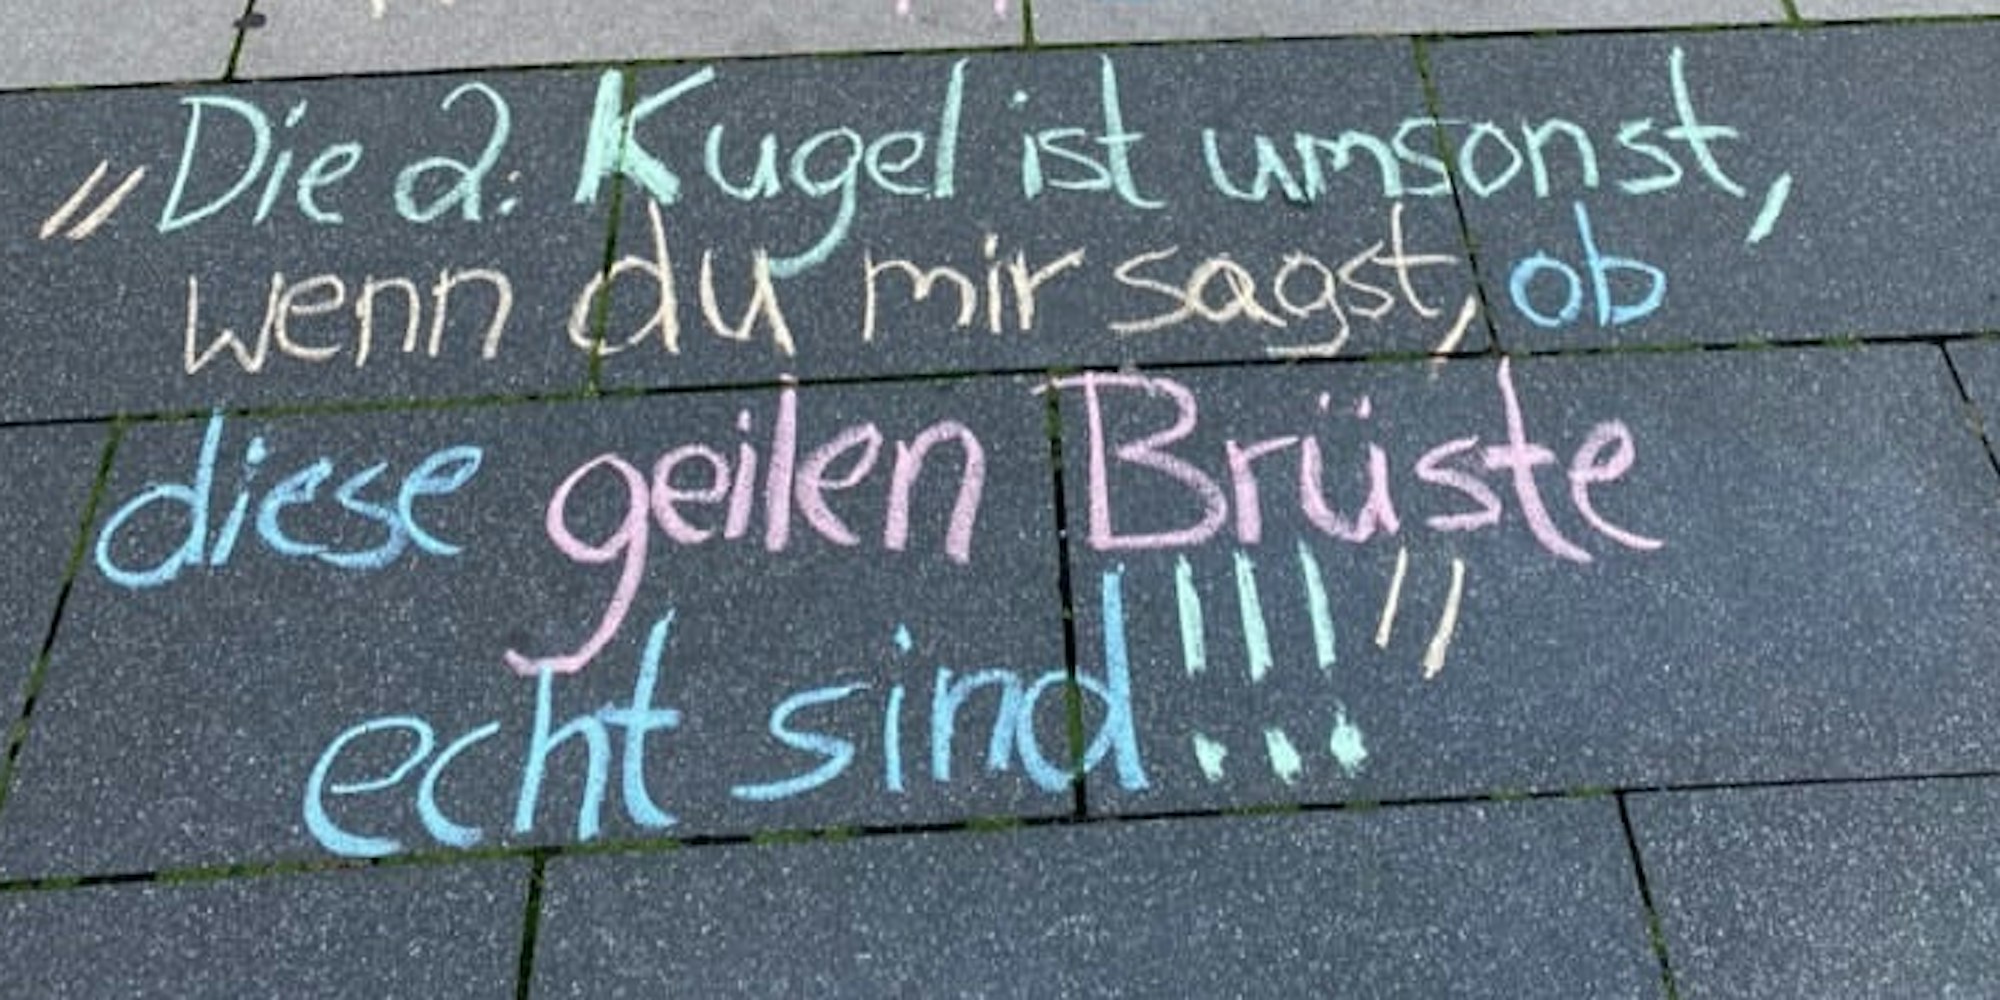 "Die 2. Kugel ist umsonst,
wenn du mir sagst, ob
diese geilen Brüste
echt sind!!!"